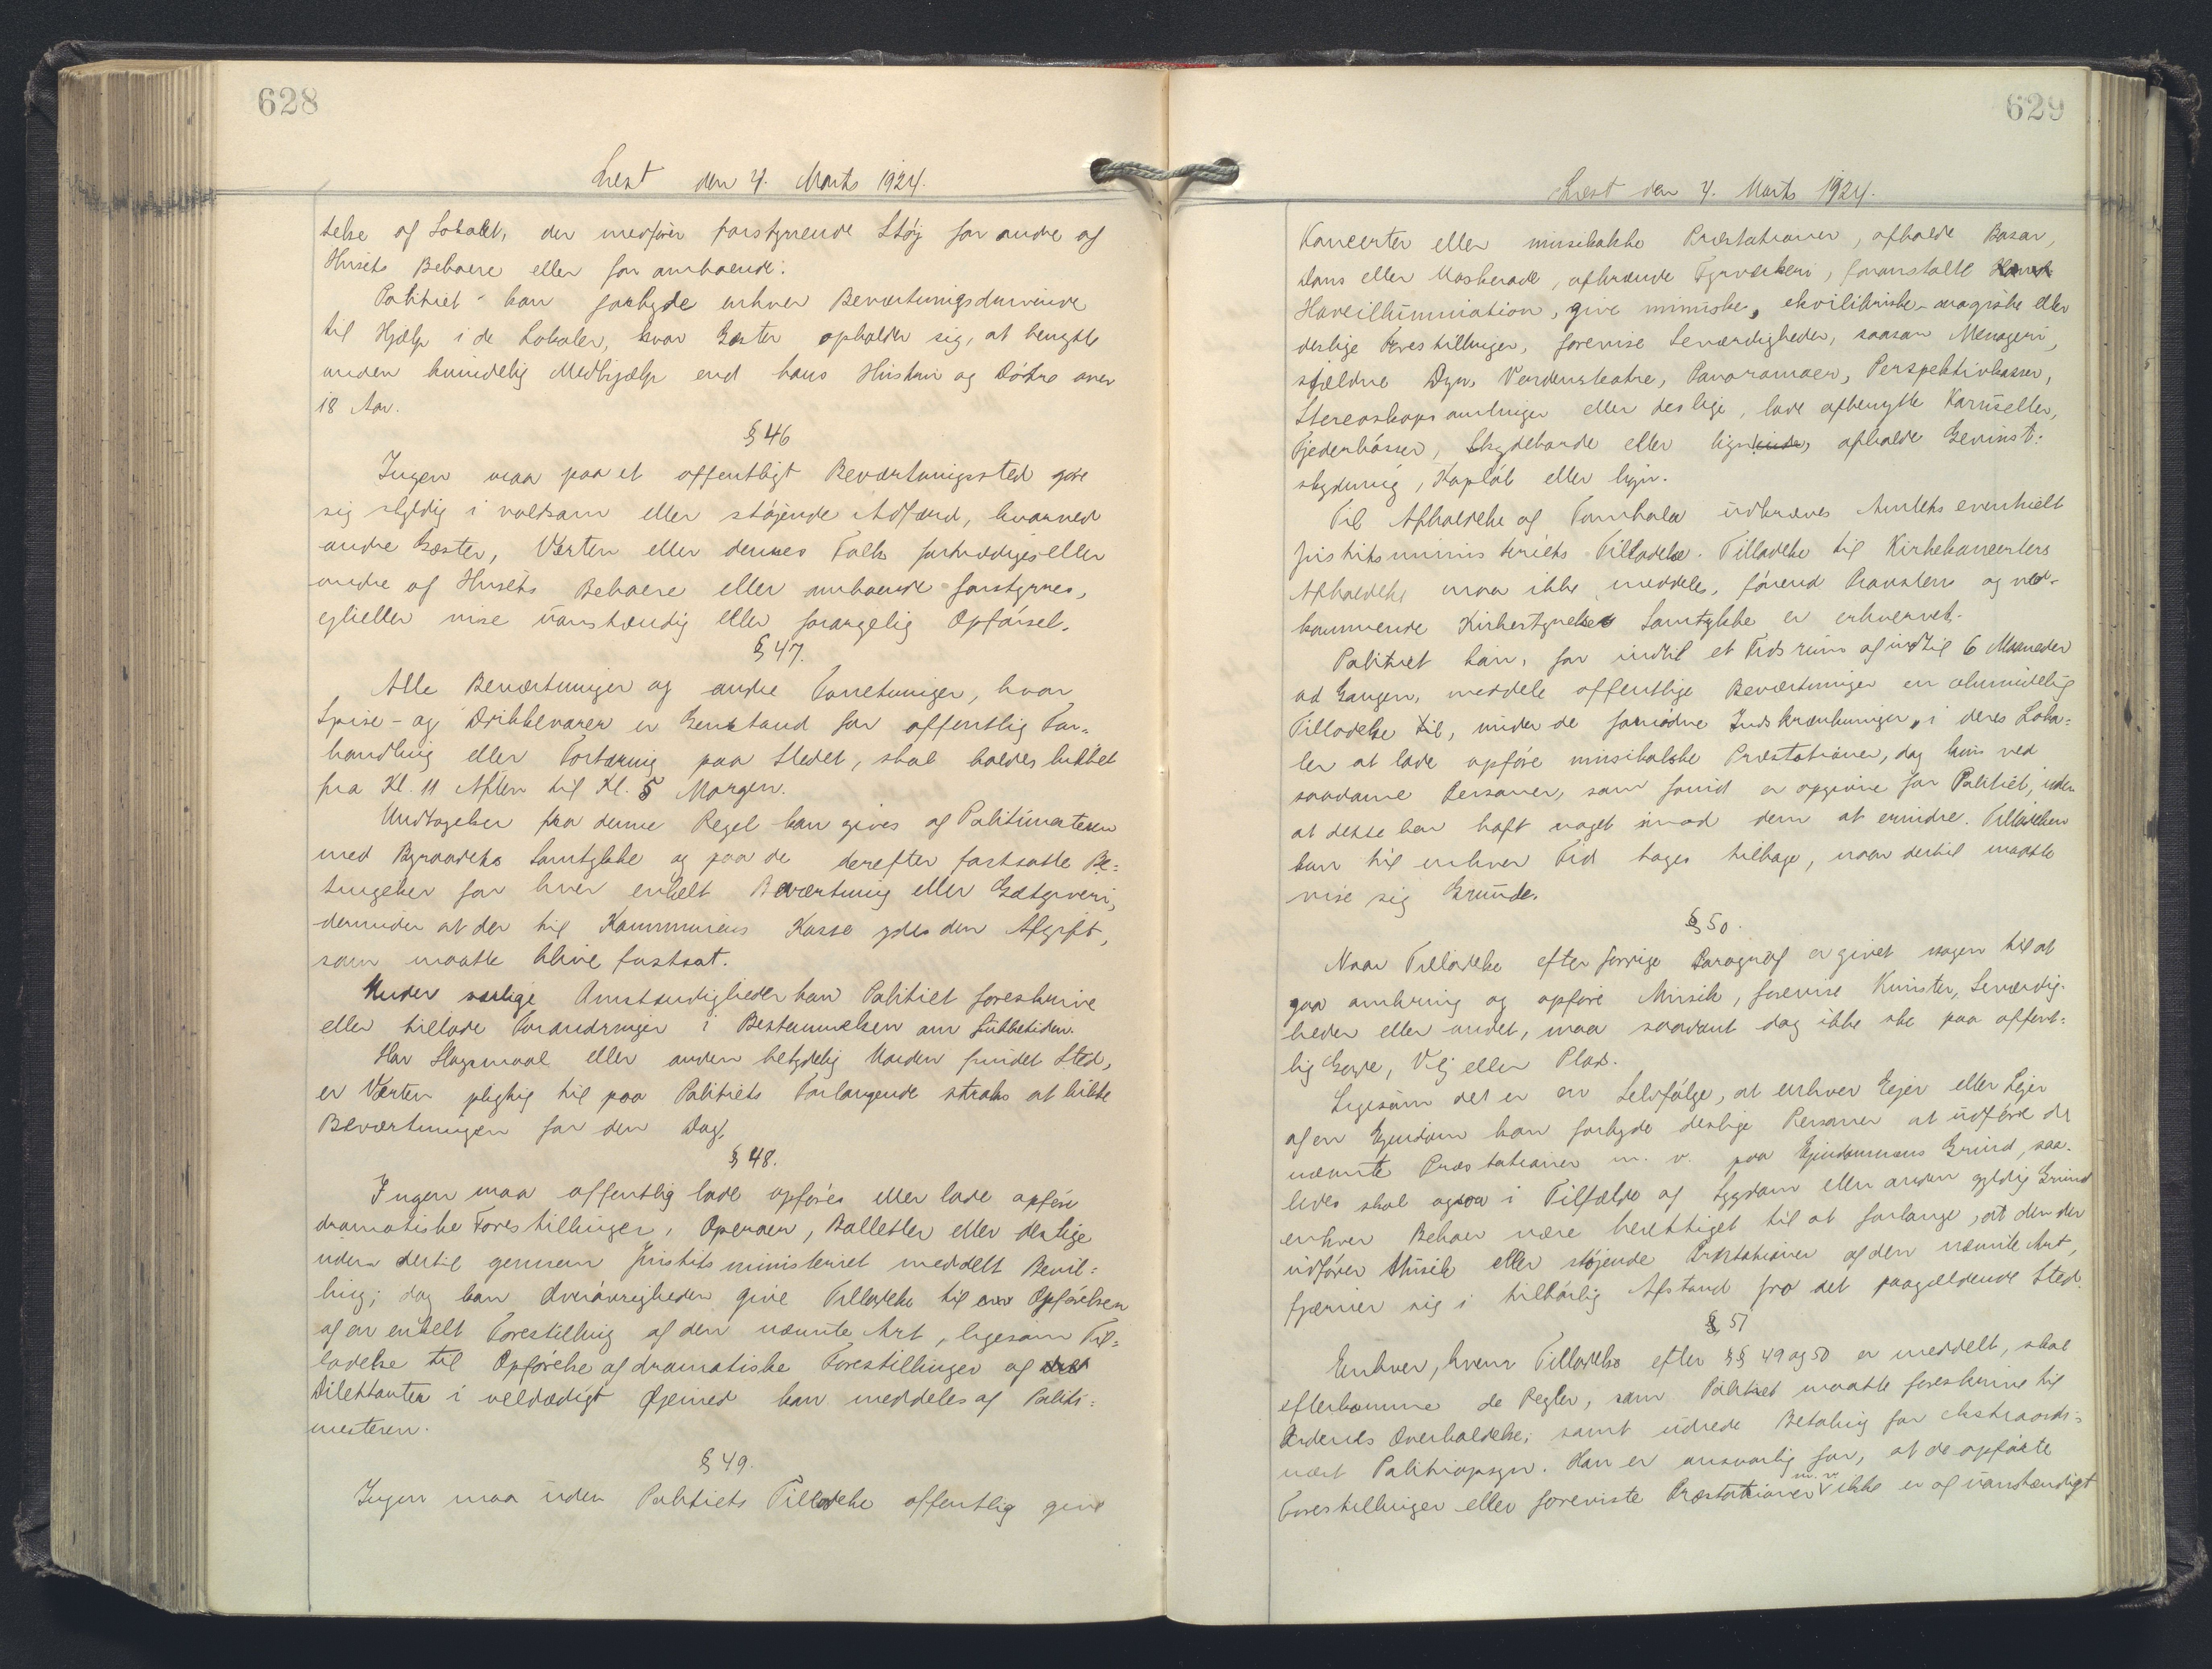 628
Læst den 4. Marts 1924.
telse af Lokalet, der medfører forstyrrende Støj for andre af
Husets Beboere eller for omboende.
Politiet kan forbyde enhver Beværtningsdrivende
til Hjælp i de Lokaler, hvor Gæster opholder sig, at benytte
anden kvindelig Medhjælp end hans Hustru og Døtre over
18 Aar.
§ 46
Ingen maa paa et offentligt Beværtningssted gøre
sig skyldig i voldsom eller støjende Adfærd, hvorved
andre Gæster, Værten eller dennes Folk fortrædiges eller
andre af Husets Beboere eller omboende forstyrres,
ejheller vise uanstændig eller forargelig Opførsel.
§ 47.
Alle Beværtninger og andre Forretninger, hvor
Spise- og Drikkevarer er Genstand for offentlig For-
handling eller Fortæring paa Stedet, skal holdes lukket
fra Kl. 11 Aften til Kl. 5 Morgen.
Undtagelser fra denne Regel kan gives af Politimesteren
med Byraadets Samtykke og paa de derefter fastsatte Be-
tingelser for hver enkelt Beværtning eller Gæstgiveri,
derunder at der til Kommunens Kasse ydes den Afgift,
som maatte blive fastsat.
Under særlige Omstændigheder kan Politiet foreskrive
eller tillade Forandringer i Bestemmelsen om Lukketiden.
Har Slagsmaal eller anden betydelig Uorden fundet Sted,
er Værten pligtig til paa Politiets Forlangende straks at lukke
Beværtningen for den Dag.
§ 48.
Ingen maa offentlig lade opføres eller lade opføre
dramatiske Forestillinger, Operaer, Balletter eller deslige
uden dertil gennem Justitsministeriet meddelt Bevil-
ling; dog kan Overøvrigheden give Tilladelse til Opførelsen
af en enkelt Forestilling af den nævnte Art, ligesom Til-
ladelse til Opførelse af dramatiske Forestillinger af
Dilettanter i veldædigt Øjemed kan meddeles af Politi-
mesteren.
§ 49.
Ingen maa uden Politiets Tilladelse offentlig give
629
Læst den 4. Marts 1924.
Koncerter eller musikalske Præstationer, afholde Basar,
Dans eller Maskerade, afbrænde Fyrværkeri, foranstalte
Haveillumination, give mimiske, ekvilibriske, magiske eller
deslige Forestillinger, forevise Seværdigheder, saasom Menageri,
sjældne Dyr, Verdensteatre, Panoramaer, Perspektivkasser,
Stereoskopsamlinger eller deslige, lade afbenytte Karuseller,
Fjederbøsser, Skydebaner eller lign, afholde Gevinst-
skydning, Kapløb eller lign.
Til Afholdelse af Tombola udkræves Amtets eventuelt
Justitsministeriets Tilladelse. Tilladelse til Kirkekoncerters
Afholdelse maa ikke meddeles, førend Provstens og ved-
kommende Kirkestyrelses Samtykke er erhvervet.
Politiet kan, for indtil et Tidsrum af indtil 6 Maaneder
ad Gangen, meddele offentlige Beværtninger en almindelig
Tilladelse til, under de fornødne Indskrænkninger, i deres Loka-
ler at lade opføre musikalske Præstationer, dog kun ved
saadanne Personer, som forud er opgivne for Politiet, uden
at dette har haft noget imod dem at erindre. Tilladelsen
kan til enhver Tid tages tilbage, naar dertil maatte
vise sig Grunde.
§ 50.
Naar Tilladelse efter forrige Paragraf er givet nogen til at
gaa omkring og opføre Musik, forevise Kunster, Seværdig-
heder eller andet, maa saadant dog ikke ske paa offent-
lig Gade, Vej eller Plads.
Ligesom det er en Selvfølge, at enhver Ejer eller Lejer
af en Ejendom kan forbyde deslige Personer at udføre de
nævnte Præstationer m. v. paa Ejendommens Grund, saa-
ledes skal ogsaa i Tilfælde af Sygdom eller anden gyldig Grund
enhver Beboer være berettiget til at forlange, at den der
udfører Musik eller støjende Præstationer af den nævnte Art,
fjerner sig i tilbørlig Afstand fra det paagældende Sted.
§ 51
Enhver, hvem Tilladelse efter §§ 49 og 50 er meddelt, skal
efterkomme de Regler, som Politiet maatte foreskrive til
Ordenens Overholdelse, samt udrede Betaling for ekstraordi-
nært Politiopsyn. Han er ansvarlig for, at de opførte
Forestillinger eller foreviste Præstationer m. v. ikke er af uanstændigt